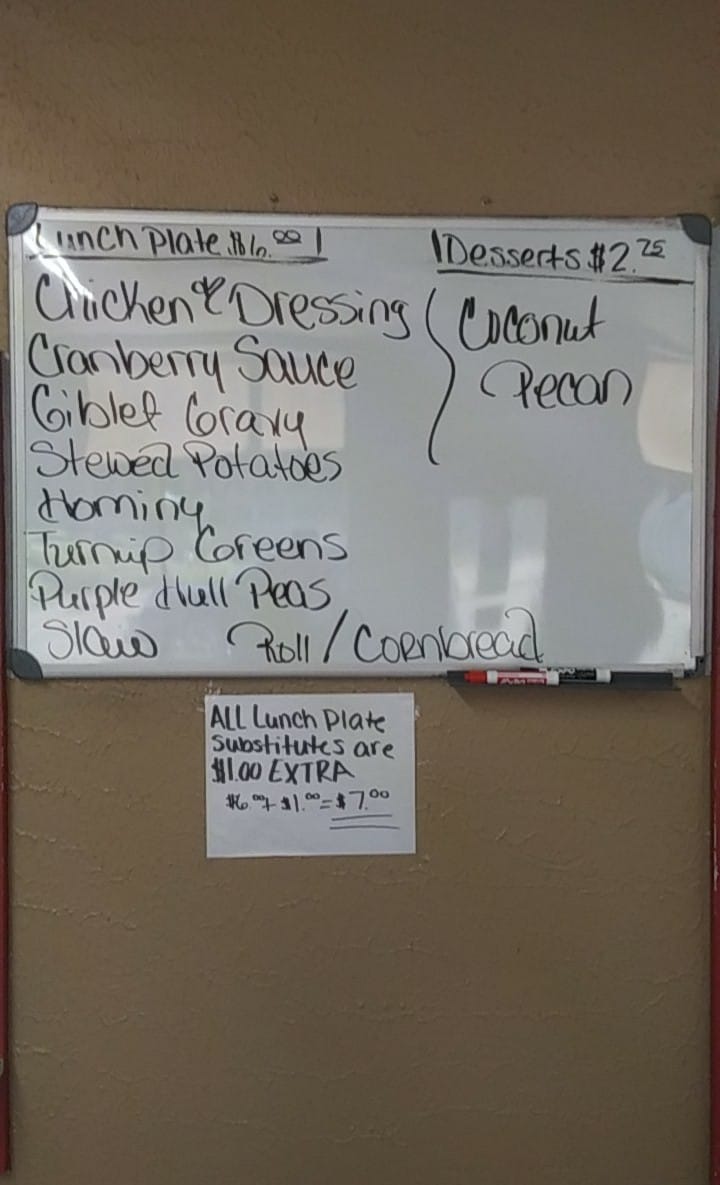 Lunch Plate $6.00
Chicken & Dressing
Cranberry Sauce
Giblet Gravy
Stewed Potatoes
Hominy
Turnip Greens
Purple Hull Peas
Slaw Roll / Cornbread
Desserts $2.75
Coconut
Pecan
ALL Lunch Plate
Substitutes are
$1.00 EXTRA
$6.00 + $1.00 = $7.00